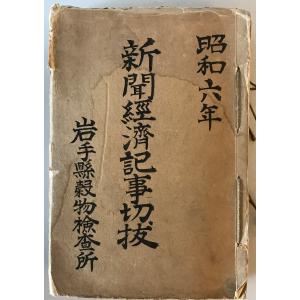 昭和六年
新聞經濟記事切拔
岩手縣穀物檢查所